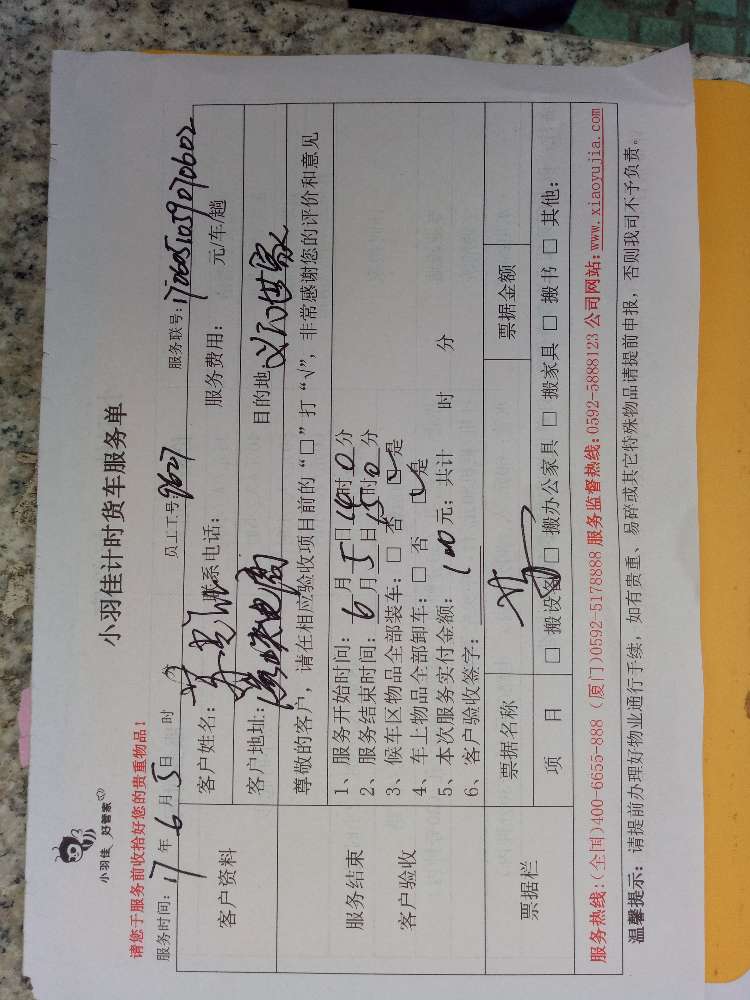 小羽佳 好管家
小羽佳计时货车服务单
请您于服务前收拾好您的贵重物品!
服务时间: 17 年 6 月 5 日 时 员工工号 9627 服务联号: 1706051039070602
客户资料
客户姓名: 联系电话: 服务费用: 元/车/趟
客户地址: 目的地: 世家
尊敬的客户,请在相应验收项目前的“□”打“√”,非常感谢您的评价和意见
服务结束
客户验收
1、服务开始时间: 6 月 5 日 14 时 0 分
2、服务结束时间: 6 月 5 日 15 时 0 分
3、候车区物品全部装车: □ 否 ☑ 是
4、车上物品全部卸车: □ 否 ☑ 是
5、本次服务实付金额: 100 元; 共计 时 分
6、客户验收签字:
票据栏
票据名称 票据金额
项 目 □ 搬设备 □ 搬办公家具 □ 搬家具 □ 搬书 □ 其他:
服务热线:(全国)400-6655-888 (厦门)0592-5178888 服务监督热线:0592-5888123 公司网站:www.xiaoyujia.com
温馨提示: 请提前办理好物业通行手续,如有贵重、易碎或其它特殊物品请提前申报,否则我司不予负责。